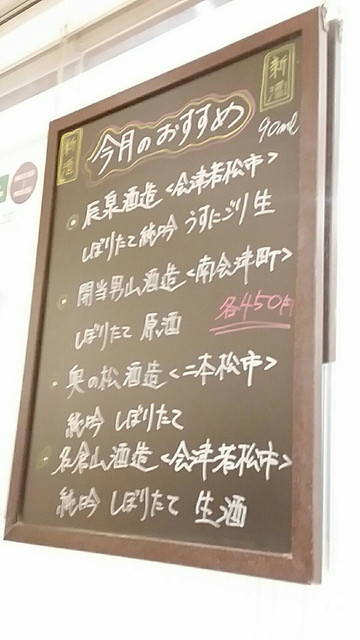 新酒
新酒
今月のおすすめ
90ml
辰泉酒造<会津若松市>
しぼりたて純吟 うすにごり生
開当男山酒造<南会津町>
各450円
しぼりたて 原酒
奥の松酒造<二本松市>
純吟 しぼりたて
名倉山酒造<会津若松市>
純吟 しぼりたて 生酒